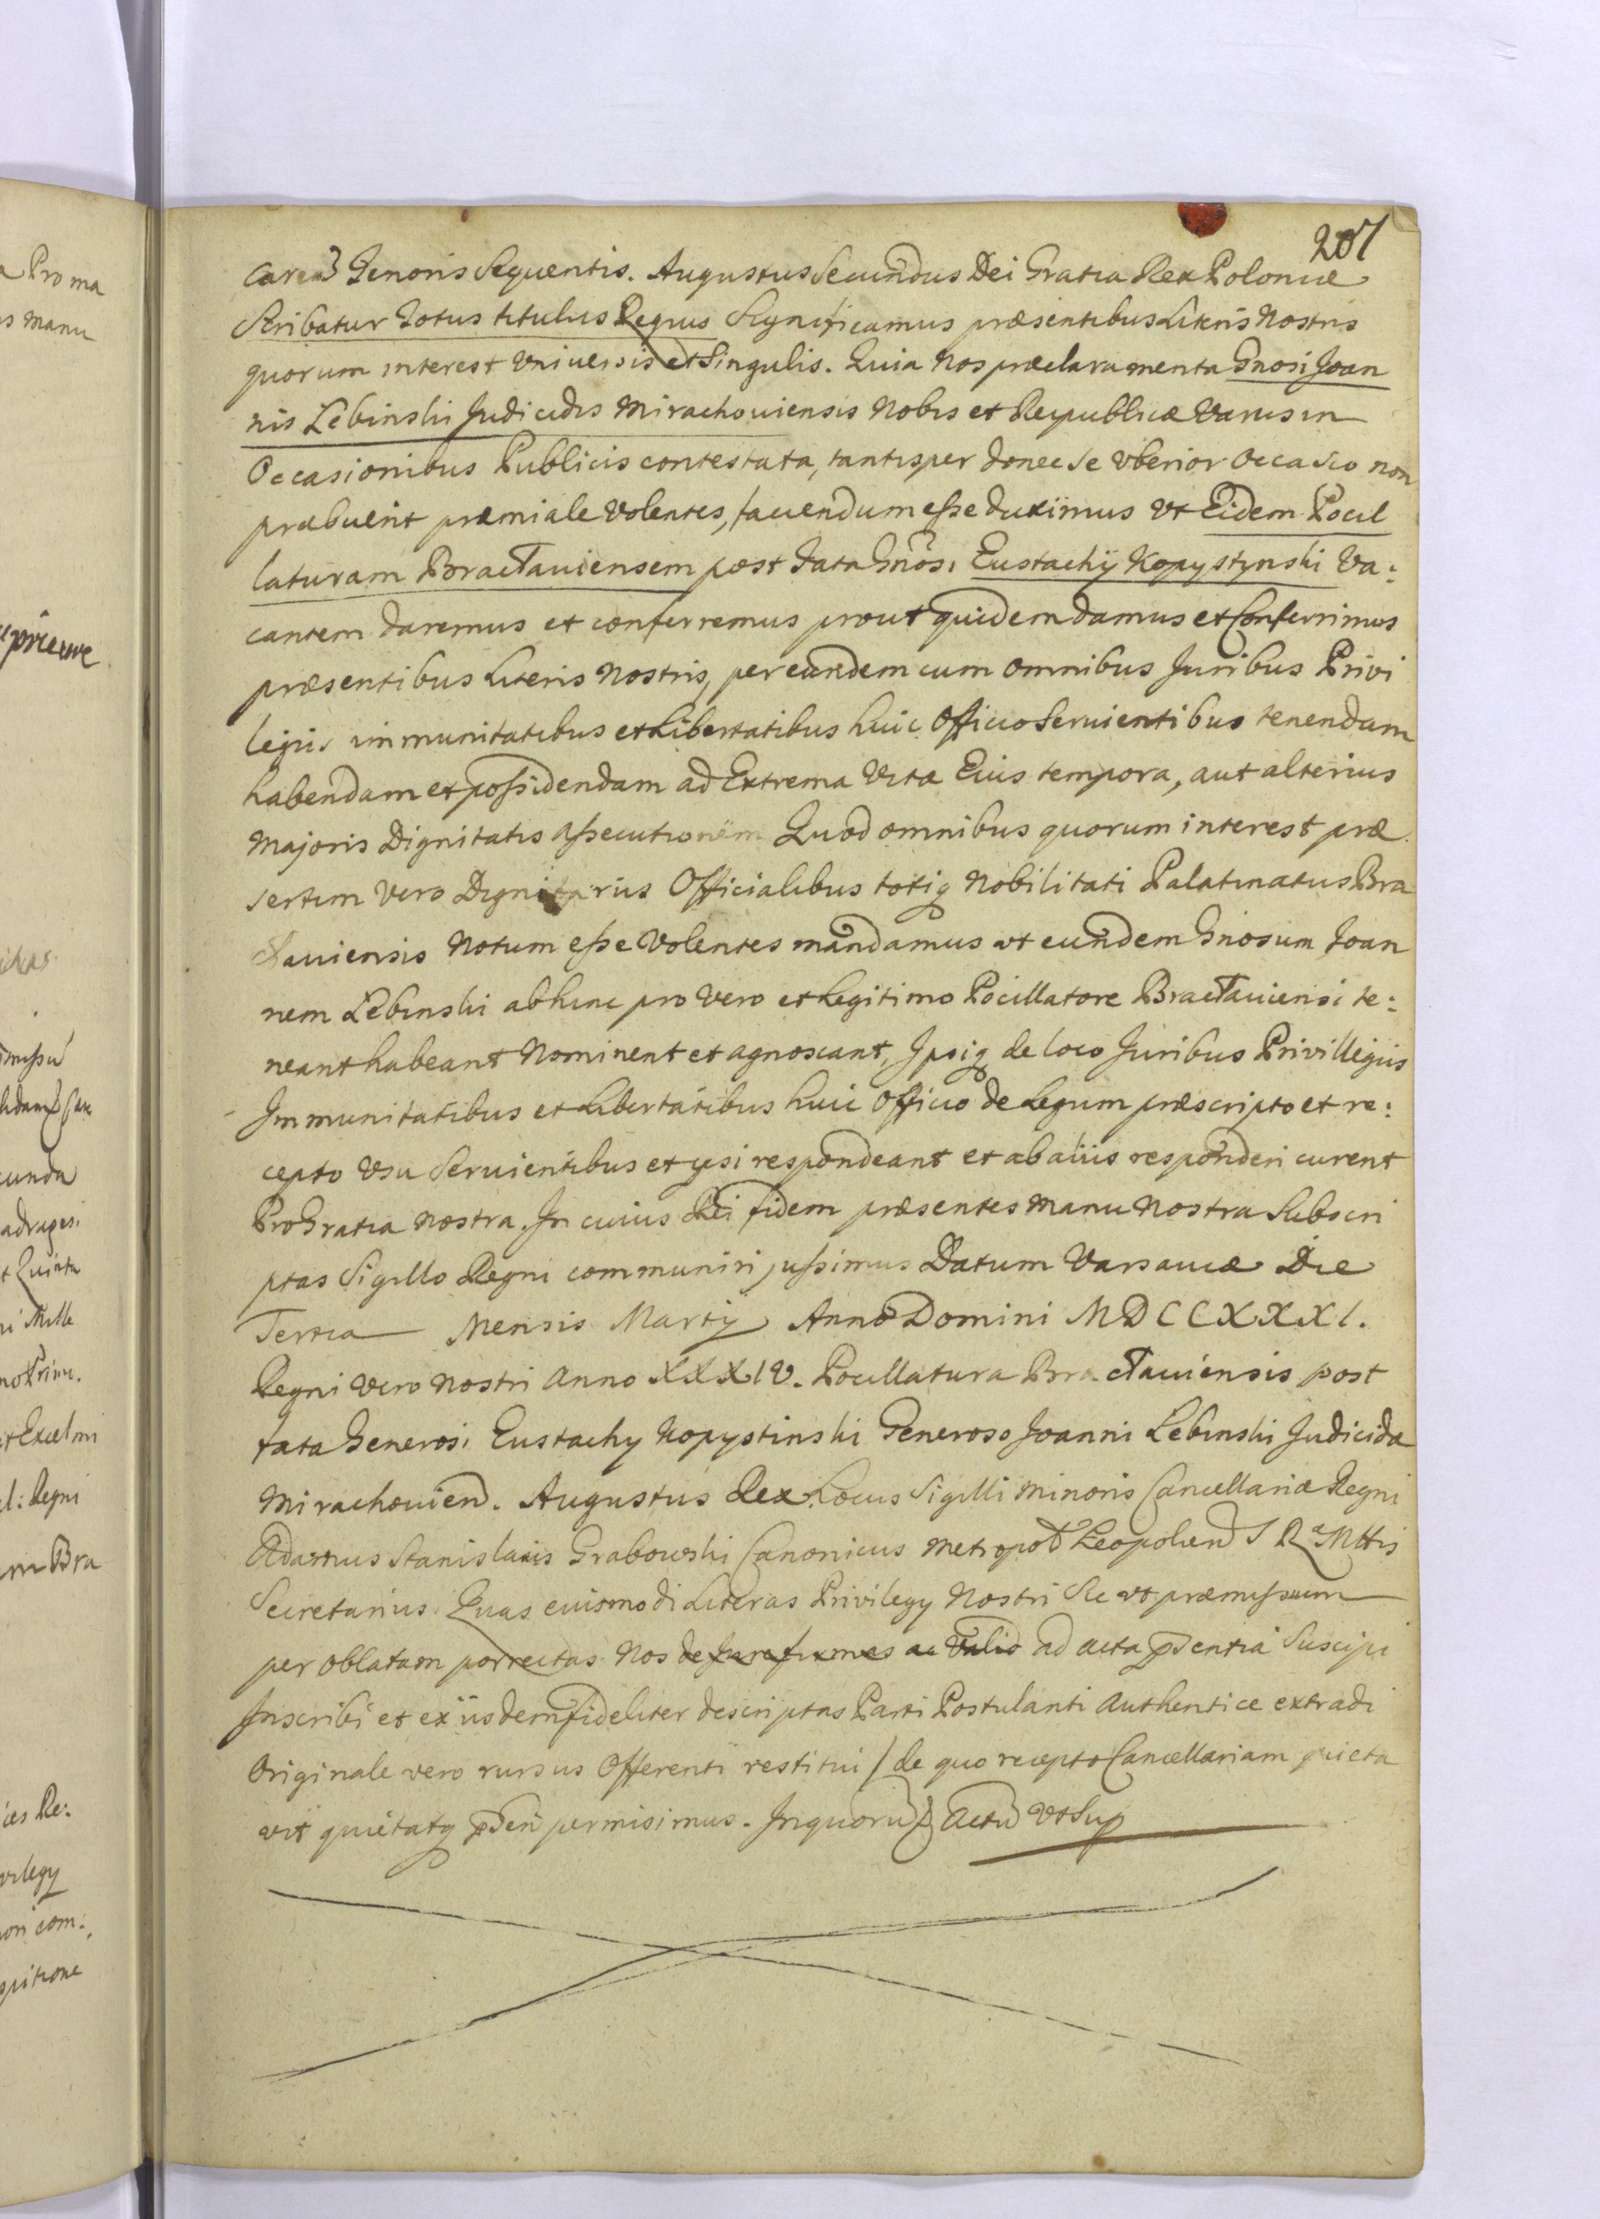 207
Tenoris Sequentis. Augustus Secundus Dei Gratia Rex Poloniæ
Scribatur Totus titulus Regius Significamus præsentibus Literis Nostris
quorum interest Universis et Singulis. Quia Nos præclara menta Gnosi Joan
nis Lebinski Judicidis Mirachoviensis Nobis et Reipublicæ Varijs in
Occasionibus Publicis contestata, tantisper donec se Uberior Occasio non
præbuerit præmiale Volentes, favendum esse duximus Ut Eidem Pocil
laturam Braclaviensem post fata Gnosi Eustachij Kopystynski Va:
cantem daremus et conferremus prout quidem damus et Conferrimus
præsentibus Literis Nostris, per eundem cum omnibus Juribus Privi
legijs immunitatibus et Libertatibus huic Officio Servientibus tenendam
habendam et possidendam ad Extrema Vitæ Eius tempora, aut alterius
Majoris Dignitatis assecutionem Quod omnibus quorum interest præ
sertim vero Dignitarijs Officialibus totiq Nobilitati Palatinatus Bra
claviensis Notum esse Volentes mandamus ut eundem Gnosum Joan
nem Lebinski abhinc pro Vero et Legitimo Pocillatore Braclaviensi te:
neant habeant Nominent et agnoscant, Ipsiq de loco Juribus Privillegijs
Immunitatibus et Libertatibus huic Officio de Legum præscripto et re:
cepto Usu Servientibus et ipsi respondeant et ab alijs responderi curent
Pro Gratia Nostra. In cuius Rei fidem præsentes Manu Nostra Subscri
ptas Sigillo Regni communiri jussimus Datum Varsaviæ Die
Tertia Mensis Martij Anno Domini MDCCXXXI.
Regni Vero Nostri Anno XXXIV. Pocillatura Braclaviensis post
fata Generosi Eustachy Kopystinski Generoso Joanni Lebinski Judicida
Mirachovien. Augustus Rex. Locus Sigilli Minoris Cancellariæ Regni
Adamus Stanislaus Grabowski Canonicus Metropol Leopolien S R Mttis
Secretarius. Quas eiusmodi Literas Privilegy Nostri Sic ut præmissum
per Oblatam porrectas Nos de Jure firmas ac Valid ad acta psentia Suscipi
Inscribi et ex ijsdem fideliter descriptas Parti Postulanti Authentice extradi
Originale vero rursus Offerenti restitui / de quo recepto Cancellariam quieta
vit quietatq psen permisimus. In quoru Actu Ut Sup